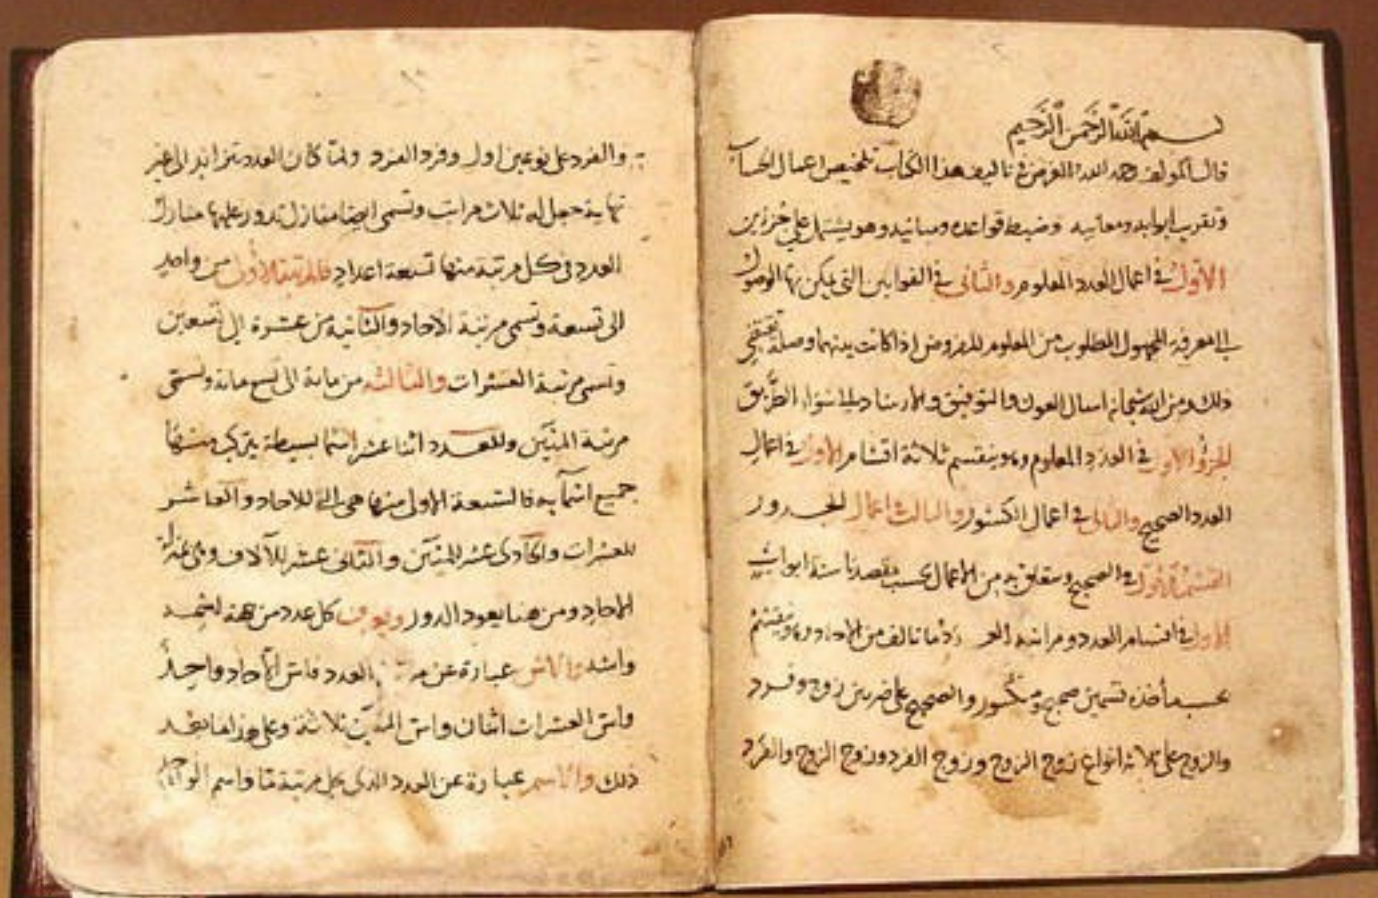 بسم الله الرحمن الرحيم
قال المولف رحمه الله الغرض في تاليف هذا الكتاب تلخيص اعمال الحساب
وتقريب ابوابه ومعانيه وضبط قواعده ومبانيه وهو يشتمل على جزئين
الاول في اعمال العدد المعلوم والثاني في القوانين التي يمكن بها الوصول
الى معرفة المجهول المطلوب من المعلوم المفروض اذا كانت بينهما وصلة تقتضي
ذلك ومن الله سبحانه اسال العون والتوفيق والارشاد الى سواء الطريق
الجزؤ الاول في العدد المعلوم وينقسم ثلاثة اقسام الاول في اعمال
العدد الصحيح والثاني في اعمال الكسور والثالث اعمال الجدور
القسم الاول في الصحيح ويتعلق به من الاعمال بحسب مقصدنا ستة ابواب
الاول في اقسام العدد ومراتبه العدد ما تالف من الاحاد وينقسم
بحسب مأخذه قسمين صحيح ومكسور والصحيح على ضربين زوج وفرد
والزوج على ثلاثة انواع زوج الزوج وزوج الفرد وزوج الزوج والفرد
والفرد على نوعين اول وفرد الفرد ولما كان العدد يتزايد الى غير
نهاية جعل له ثلاث مراتب وتسمى ايضا منازل تدور عليها منازل
العدد في كل مرتبة منها تسعة اعداد فالمرتبة الاولى من واحد
الى تسعة وتسمى مرتبة الاحاد والثانية من عشرة الى تسعين
وتسمى مرتبة العشرات والثالثه من ماية الى تسع ماية وتسمى
مرتبة المئين وللعدد اثنا عشر اسما بسيطة يتركب منها
جميع اسمآيه فالتسعة الاولى منها هي التي للاحاد والعاشر
للعشرات والحادى عشر للمئين والثاني عشر للآلاف وهي
الاحاد ومن هنا يعود الدور كل عدد من هذه
والاس عبارة عن العدد فاس الآحاد واحد
واس العشرات اثنان واس المئين ثلاثة وعلى هذا
ذلك والاسم عبارة عن العدد الذي بكل مرتبة ما واسم